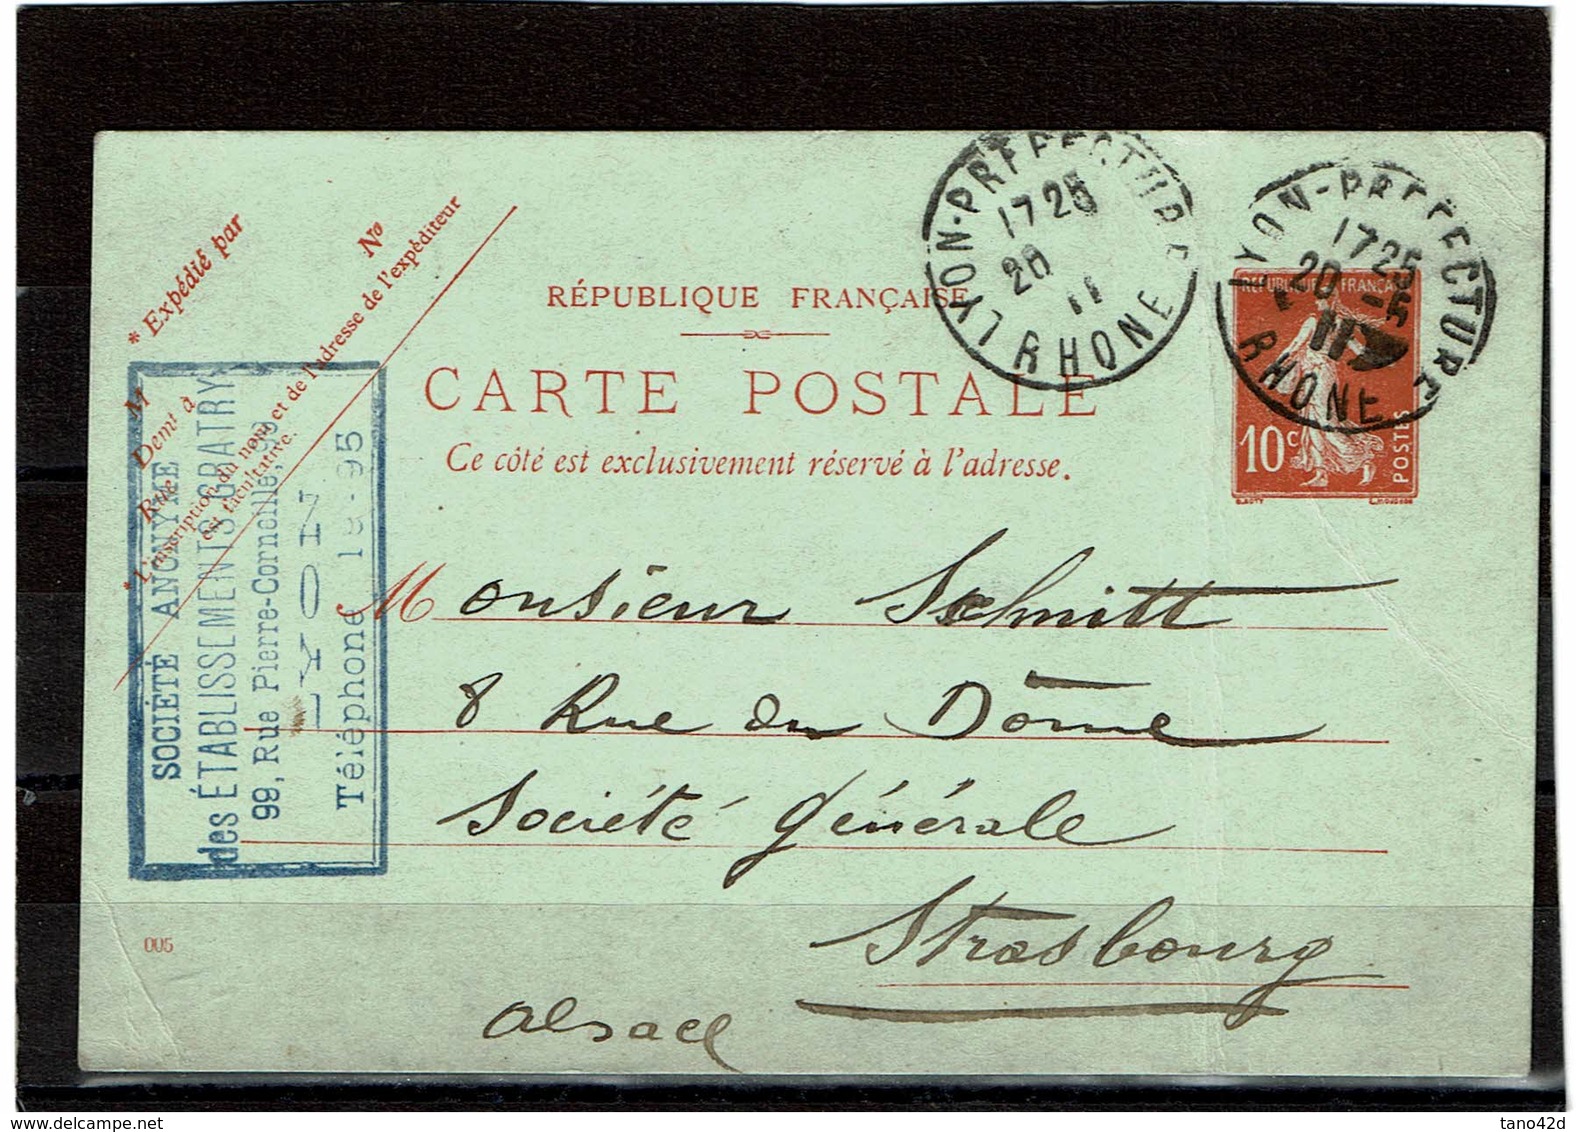 * Expédié par
M
Demt à
Rue
No
* L'inscription du nom et de l'adresse de l'expéditeur
est facultative.
SOCIÉTÉ ANONYME
des ÉTABLISSEMENTS GRATRY
99, Rue Pierre-Corneille, 99
LYON
Téléphone 18-95
RÉPUBLIQUE FRANÇAISE
CARTE POSTALE
Ce côté est exclusivement réservé à l'adresse.
LYON-PRÉFECTURE
1725
20
11
RHONE
LYON-PRÉFECTURE
1725
20 -5
11
RHONE
REPUBLIQUE FRANÇAISE
10c
POSTES
Monsieur Schmitt
8 Rue du Dôme
Société Générale
Strasbourg
Alsace
005
tano42d